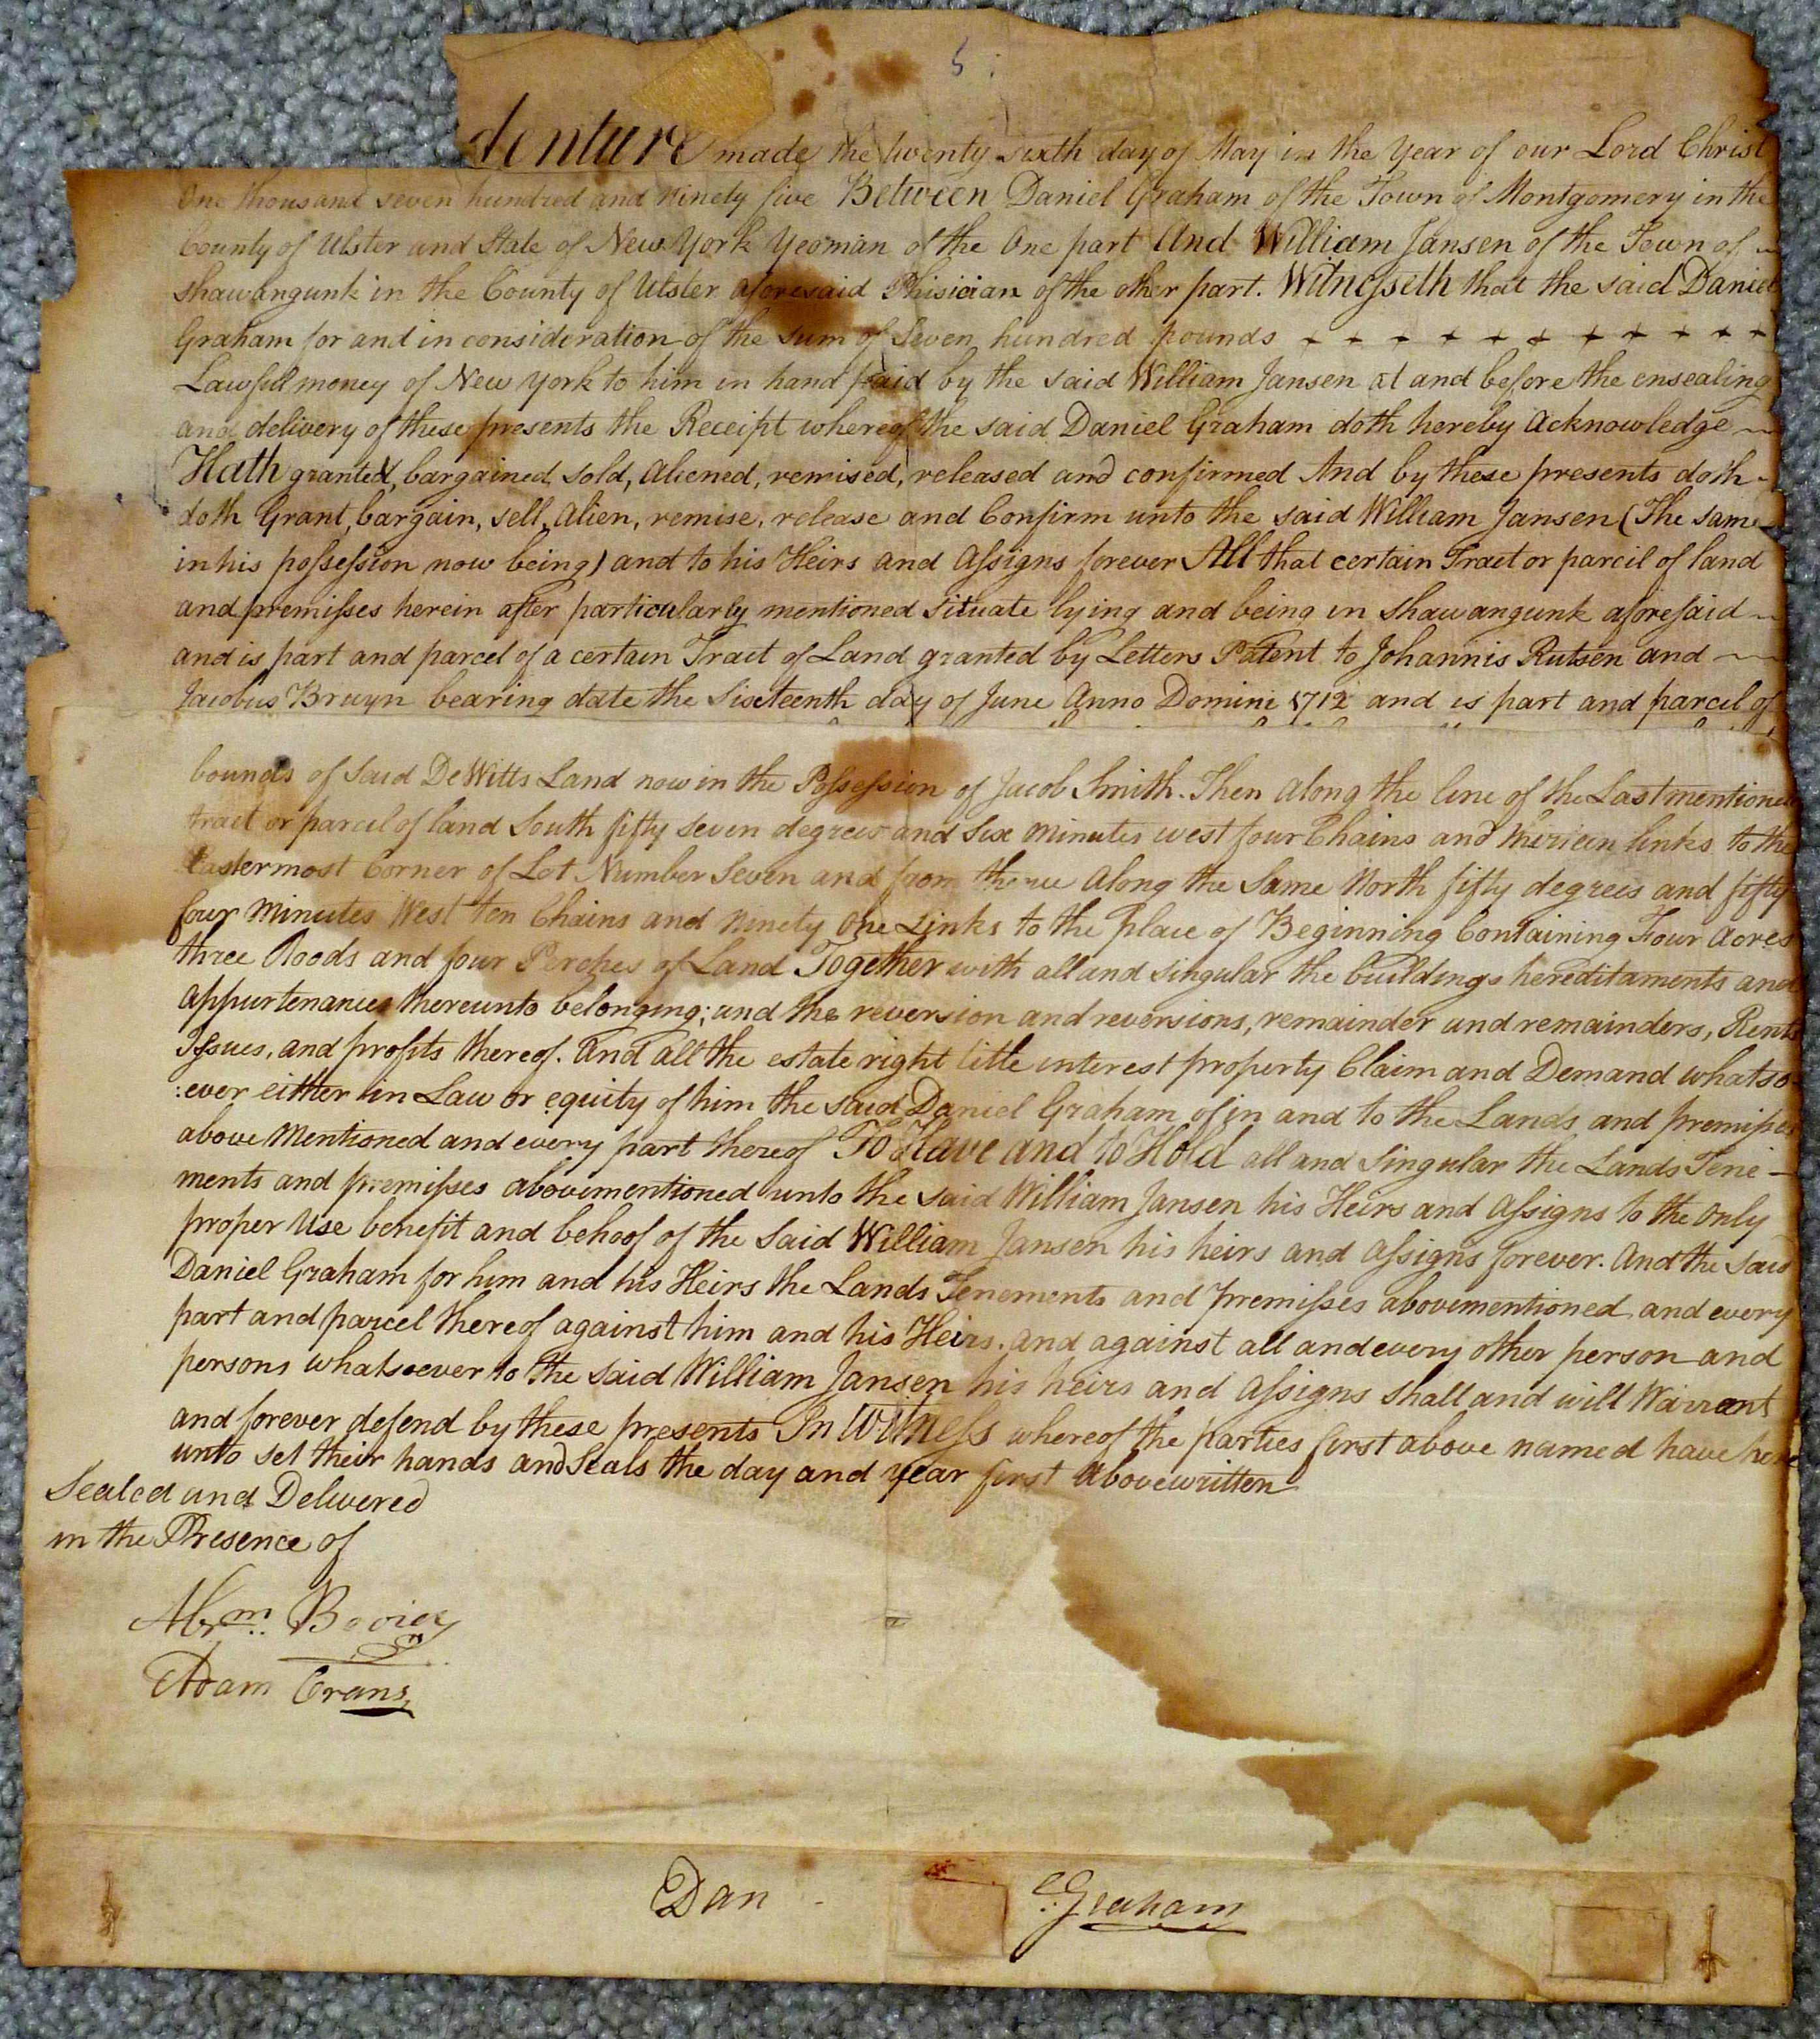 denture made the twenty sixth day of May in the Year of our Lord Christ
One thousand seven hundred and Ninety five Between Daniel Graham of the Town of Montgomery in the
County of Ulster and State of New York Yeoman of the One part And William Jansen of the Town of
Shawangunk in the County of Ulster aforesaid Phisician of the other part. Witnesseth that the said Daniel
Graham for and in consideration of the sum of Seven hundred pounds + + + + + + + + + + +
Lawfull money of New York to him in hand paid by the said William Jansen at and before the ensealing
and delivery of these presents the Receipt whereof the said Daniel Graham doth hereby Acknowledge
Hath granted, bargained, sold, Aliened, remised, released and confirmed And by these presents doth
doth Grant, bargain, sell, Alien, remise, release and Confirm unto the said William Jansen (The same
in his possession now being) and to his Heirs and Assigns forever All that certain Tract or parcil of land
and premisses herein after particularly mentioned situate lying and being in Shawangunk aforesaid
and is part and parcel of a certain Tract of Land granted by Letters Patent to Johannis Rutsen and
Jacobus Bruyn bearing date the Sixteenth day of June Anno Domini 1712 and is part and parcel of
bounds of said DeWitts Land now in the Possession of Jacob Smith. Then Along the line of the Last mentioned
tract or parcel of land South fifty seven degrees and six minutes west four Chains and links to the
Eastermost Corner of Lot Number Seven and from thence Along the Same North fifty degrees and fifty
four Minutes West ten Chains and Ninety One Links to the place of Beginning Containing Four Acres
three Roods and four Perches of Land Together with all and singular the buildings hereditaments and
Appurtenances thereunto belonging; and the reversion and reversions, remainder and remainders, Rents
Issues, and profits thereof. And all the estate right title interest property Claim and Demand whatso
:ever either in Law or equity of him the said Daniel Graham of in and to the Lands and premisses
above Mentioned and every part thereof To Have and to Hold all and Singular the Lands Tene
ments and premisses abovementioned unto the said William Jansen his Heirs and Assigns to the Only
proper Use benefit and behoof of the said William Jansen his heirs and Assigns forever. And the said
Daniel Graham for him and his Heirs the Lands Tenements and premisses abovementioned and every
part and parcel thereof against him and his Heirs, and against all and every other person and
persons whatsoever to the said William Jansen his heirs and Assigns shall and will Warrant
and forever defend by these presents In Witness whereof the parties first above named have here
unto set their hands and Seals the day and year first Abovewritten
Sealed and Delivered
in the Presence of
Abrm. Bevier
Adam Crans
Dan Graham